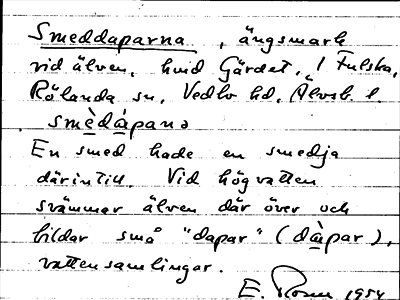 Smeddaparna, ängsmark
vid älven, hvid Gärdet, 1 Fulska,
Rölanda sn, Vedbo hd, Älvsb. l.
smèdàpanə
En smed hade en smedja
därintill. Vid högvatten
svämmar älven där över och
bildar små "dapar" (dàpar),
vattensamlingar.
E. Rosen 1954